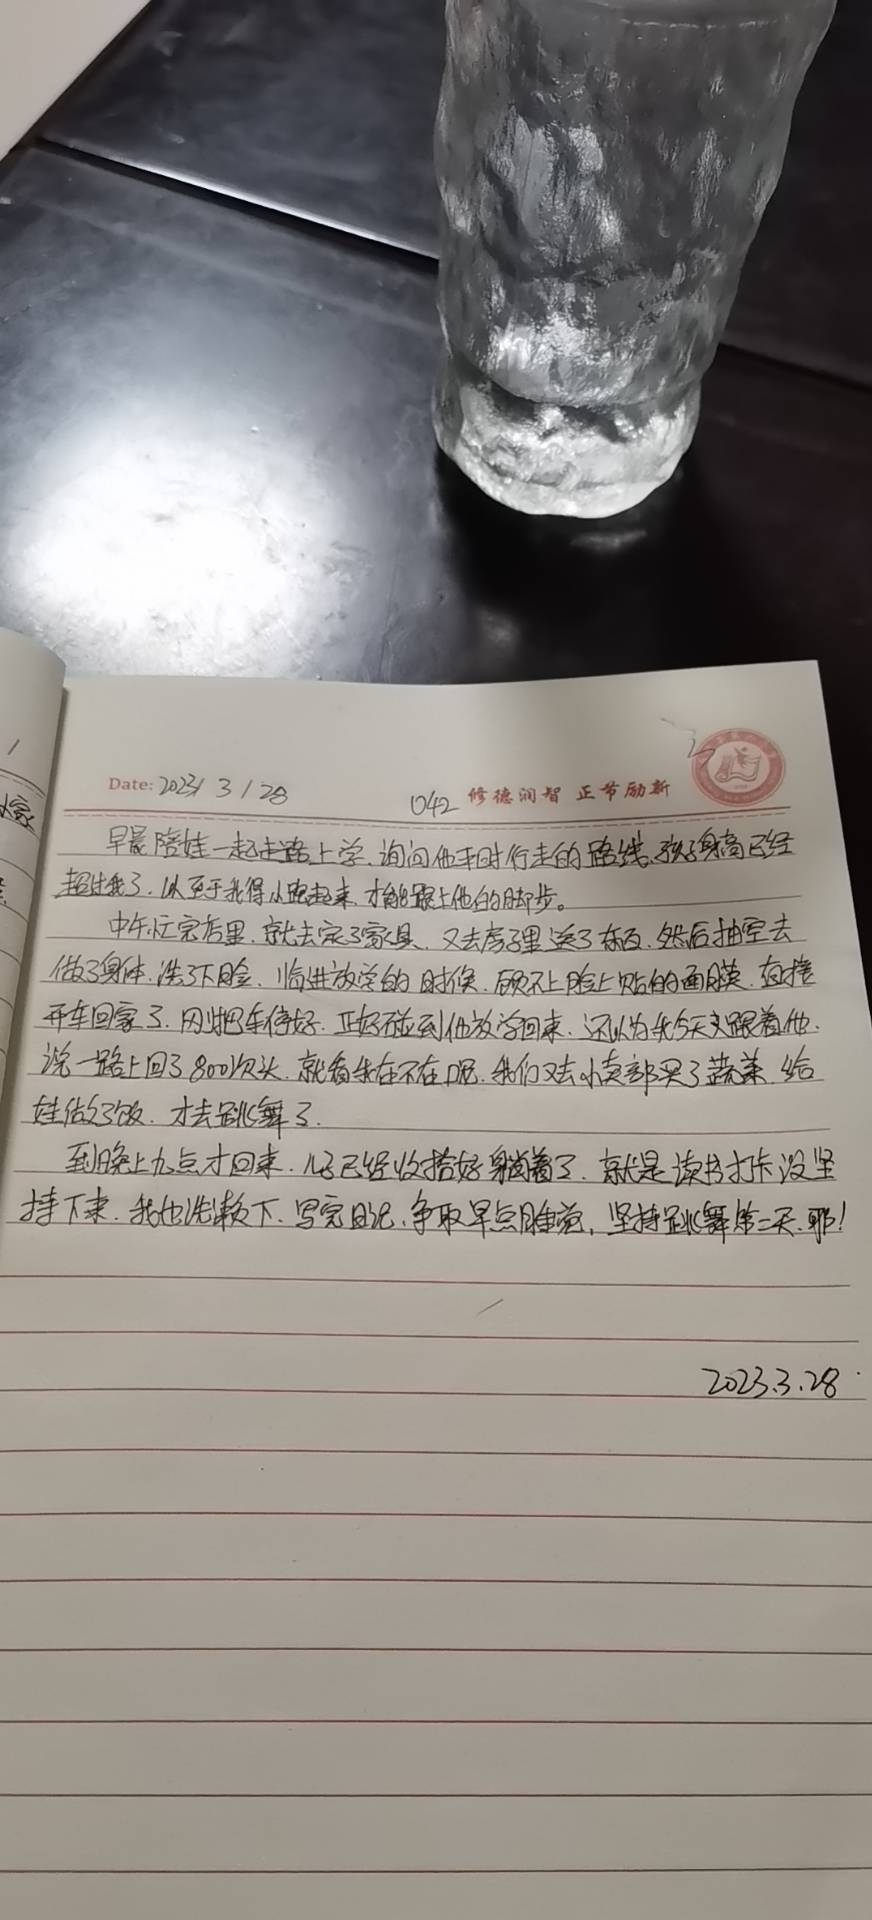 Date: 2023 / 3 / 28
042 修德润智 正节励新
早晨陪娃一起走路上学、询问他平时行走的路线、孩子身高已经
超过我了、以至于我得小跑起来、才能跟上他的脚步。
中午忙完店里、就去定了家具、又去房子里送了东西、然后抽空去
做了身体、洗了下脸、临进放学的时候、顾不上脸上贴的面膜、直接
开车回家了、刚把车停好、正好碰到他放学回来、还以为我今天又跟着他、
说一路上回了800次头、就看我在不在呢、我们又去小卖部买了蔬菜、给
娃做了饭、才去跳舞了、
到晚上九点才回来、儿子已经收拾好躺着了、就是读书打卡没坚
持下来、我也洗漱下、写完日记、争取早点睡觉、坚持跳舞第二天、耶！
2023.3.28
家